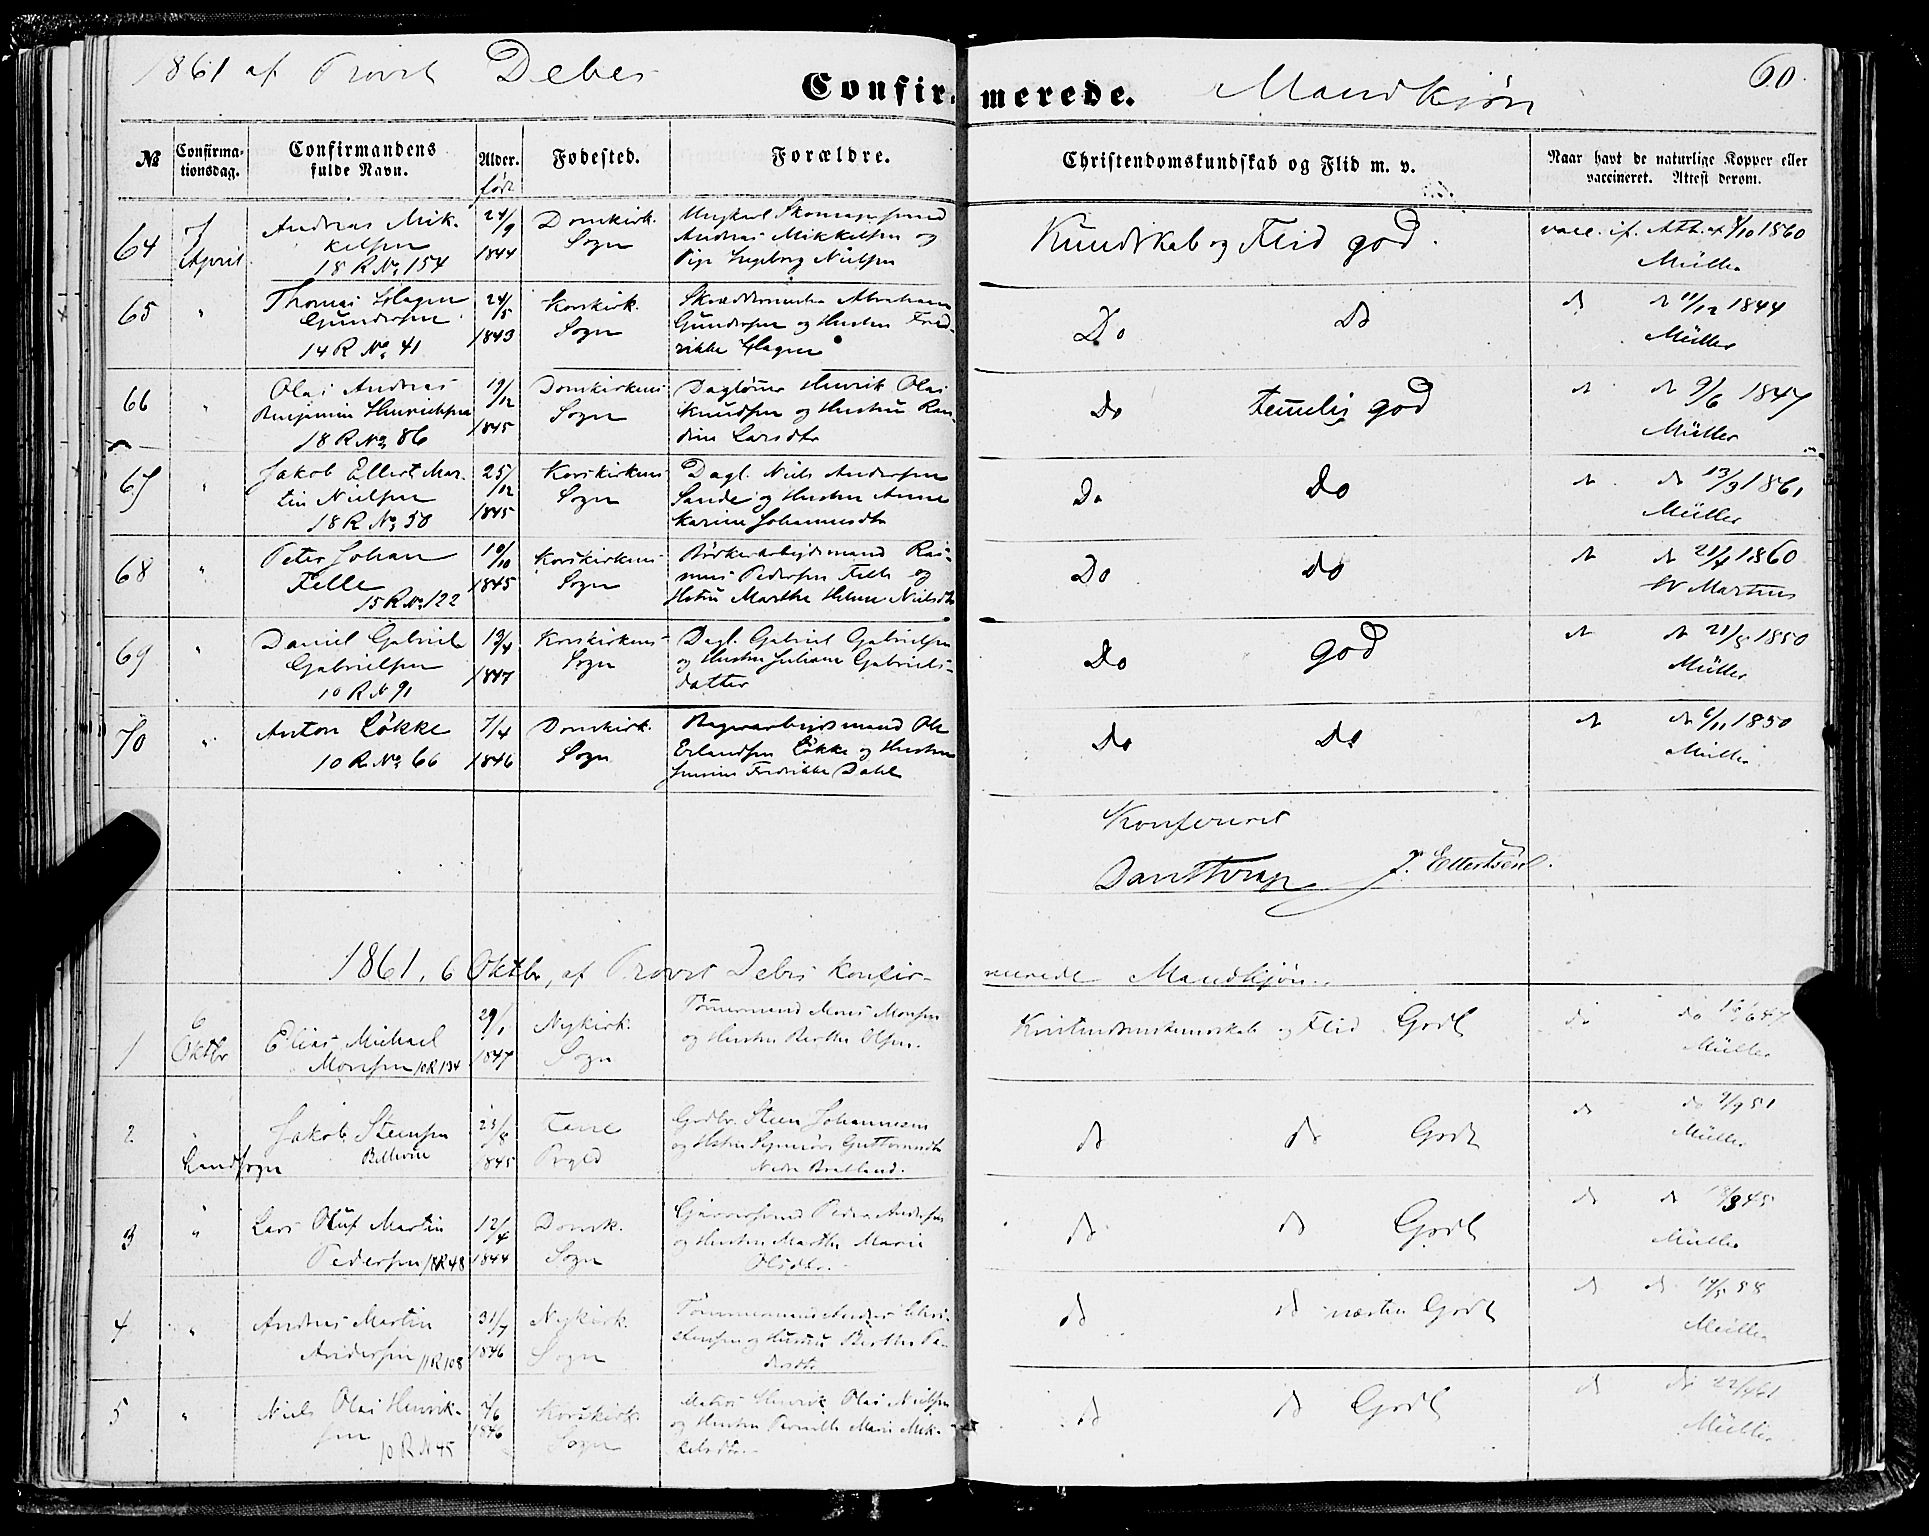 1861 af Provst Debes
Confirmerede.
Mandkjøn
60.
№
Confirmationsdag.
Confirmandens
fulde Navn.
Alder.
født
Fødested.
Forældre.
Christendomskundskab og Flid m. v.
Naar havt de naturlige Kopper eller
vaccineret. Attest derom.
64
7
April
Andreas Mik-
kelsen
18 R No 154
24/9
1844
Domkirk.
Sogn
Andreas Mikkelsen og
Pige Ingeborg Nielsen
Kundskab og Flid god.
vacc. if. Att. af 8/10 1860
Müller
65
"
Thomas Hagen
Gundersen
14 R No 41
24/5
1843
Korskirk.
Sogn
Skræddermester Abraham
Gundersen og Hustru Fred-
rikke Hagen
Do
Do
do
do 11/12 1844
Müller
66
"
Olai Andreas
Benjamin Henrichsen
18 R No 86
19/12
1845
Domkirkens
Sogn
Dagløner Henrik Olai
Knudsen og Hustru Ran-
dine Larsdtr
Do
temelig god
do
do 9/6 1847
Müller
67
"
Jakob Ellert Mar-
tin Nielsen
18 R No 50
25/12
1845
Korskirkens
Sogn
Dagl. Niels Andersen
Sande og Hustru Anne
Karine Johannesdtr
Do
do
do
do 13/3 1861
Müller
68
"
Peter Johan
Felle
15 R No 122
10/10
1845
Korskirkens
Sogn
Bødkerarbeidsmand Ras-
mus Pedersen Felle og
Hstru Marthe Helene Nielsdtr
Do
do
do
do 21/4 1860
W Martens
69
"
Daniel Gabriel
Gabrielsen
10 R N 91
19/4
1847
Korskirkens
Sogn
Dagl. Gabriel Gabrielsen
og Hustru Juliane Gabriels-
datter
Do
god
do
do 21/5 1850
Müller
70
"
Anton Løkke
10 R No 66
7/4
1846
Domkirk.
Sogn
Bagerarbeidsmand Ole
Erlandsen Løkke og Hustru
Fredrikke Dahl
Do
Do
do
do 6/11 1850
Müller
Konfereret
J. Ellertsen.
1861, 6 Oktbr, af Provst Debes Konfir-
merede Mandkjøn.
1
6
Oktbr
Elias Michael
Monsen 10 R 134
29/1
1847
Nykirk.
Sogn
Tømmermand Mons Monsen
og Hustru Berthe Olsen.
Kristendomskundskab og Flid Godt
do
Müller
2
"
Landsogn
Jakob Steensen
23/8
1845
Fane
Prgld
Grdbr. Steen Johannesen
og Hstru Synneve Guttormsdtr
do
do
Godt
do
do 2/9 51
Müller
3
"
Lars Oluf Martin
Pedersen 18 R 48
12/4
1844
Domk.
Sogn
Peder Andersen
og Hustru Marthe Marie
Olsdtr.
do
do
Godt
do
do 18/3 45
Müller
4
"
Andreas Martin
Andersen 11 R 108
31/7
1846
Nykirk.
Sogn
Tømmermand Anders Chri-
stensen og Hustru Berthe Pe-
dersdtr
do
do næsten Godt
do
do 14/5 58
Müller
5
"
Niels Olai Henrik-
sen
10 R N 45
4/6
1846
Korskirk.
Sogn
Matros Henrik Olai Nielsen
og Hustru Pernille Marie Mik-
kelsdtr
do
do
Godt
do
do 22/4 61
Müller